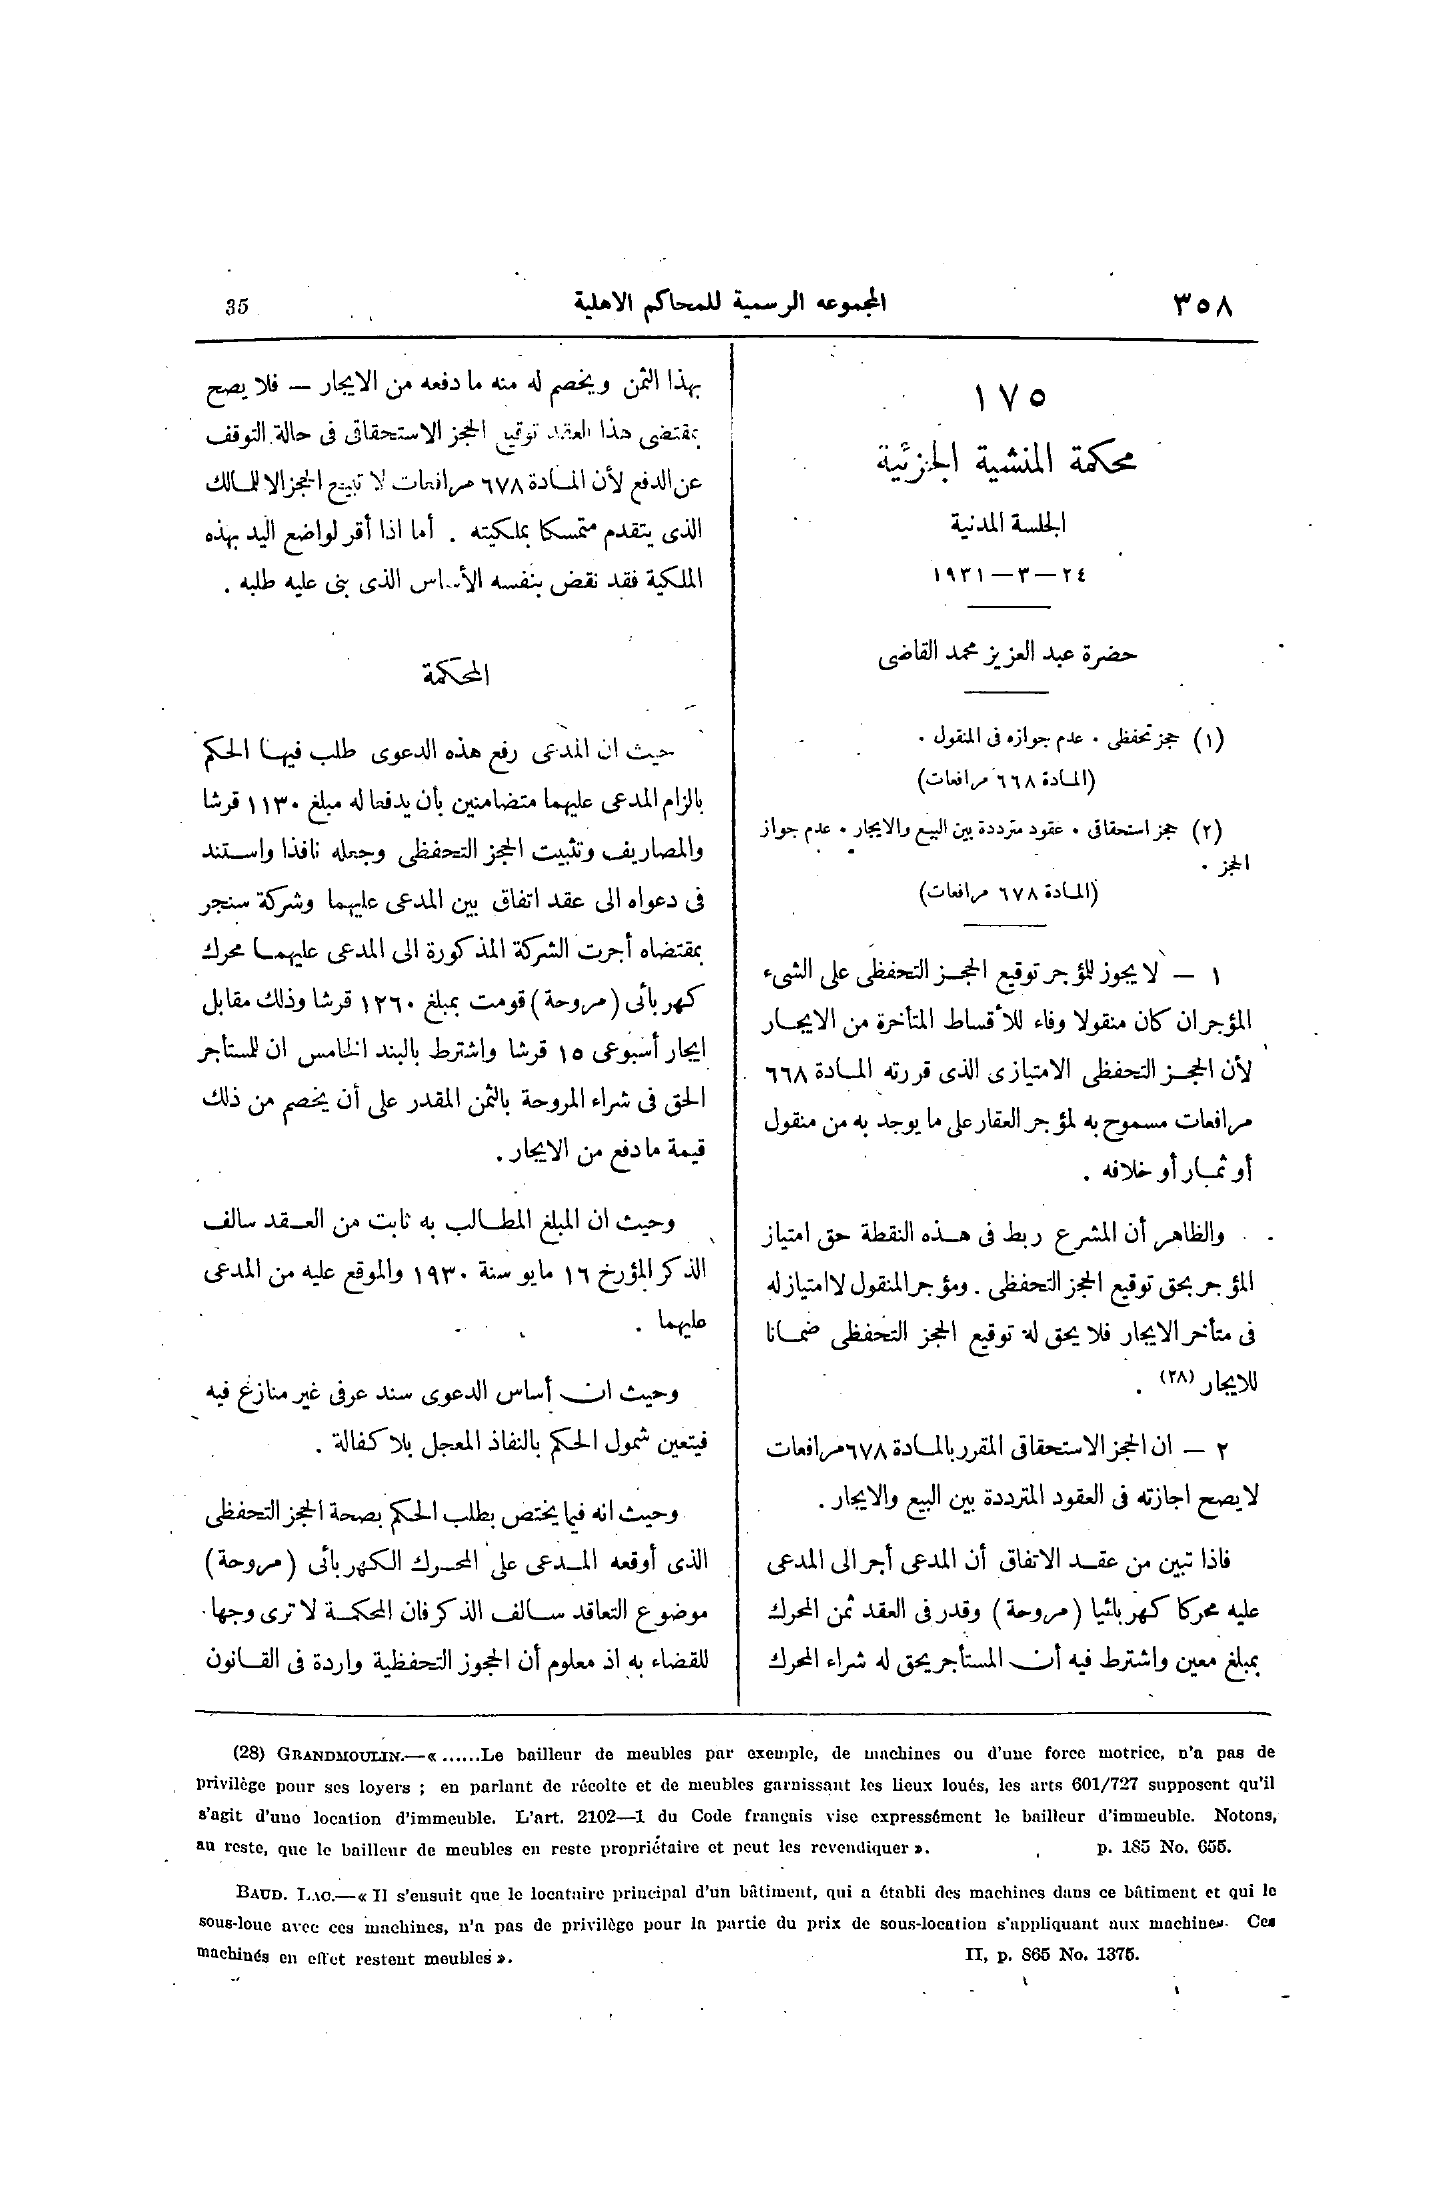 ٣٥٨
المجموعه الرسمية للمحاكم الاهلية
35
١٧٥
محكمة المنشية الجزئية
الجلسة المدنية
٢٤ — ٣ — ١٩٣١
حضرة عبد العزيز محمد القاضى
(١) حجز تحفظى . عدم جوازه فى المنقول .
(المادة ٦٦٨ مرافعات)
(٢) حجز استحقاقى . عقود مترددة بين البيع والايجار . عدم جواز
الحجز .
(المادة ٦٧٨ مرافعات)
١ — لا يجوز للمؤجر توقيع الحجز التحفظى على الشىء
المؤجر ان كان منقولا وفاء للأقساط المتأخرة من الايجار
لأن الحجز التحفظى الامتيازى الذى قررته المادة ٦٦٨
مرافعات مسموح به لمؤجر العقار على ما يوجد به من منقول
أو ثمار أو خلافه .
والظاهر أن المشرع ربط فى هذه النقطة حق امتياز
المؤجر بحق توقيع الحجز التحفظى . ومؤجر المنقول لا امتياز له
فى متأخر الايجار فلا يحق له توقيع الحجز التحفظى ضمانا
للايجار (٢٨) .
٢ — ان الحجز الاستحقاقى المقرر بالمادة ٦٧٨ مرافعات
لا يصح اجازته فى العقود المترددة بين البيع والايجار .
فاذا تبين من عقد الاتفاق أن المدعى أجر الى المدعى
عليه محركا كهربائيا (مروحة) وقدر فى العقد ثمن المحرك
بمبلغ معين واشترط فيه أن المستأجر يحق له شراء المحرك
بهذا الثمن ويخصم له منه ما دفعه من الايجار — فلا يصح
بمقتضى هذا العقد توقيع الحجز الاستحقاقى فى حالة التوقف
عن الدفع لأن المادة ٦٧٨ مرافعات لا تبيح الحجز الا للمالك
الذى يتقدم متمسكا بملكيته . أما اذا أقر لواضع اليد بهذه
الملكية فقد نقض بنفسه الأساس الذى بنى عليه طلبه .
المحكمة
حيث ان المدعى رفع هذه الدعوى طلب فيها الحكم
بالزام المدعى عليهما متضامنين بأن يدفعا له مبلغ ١١٣٠ قرشا
والمصاريف وتثبيت الحجز التحفظى وجعله نافذا واستند
فى دعواه الى عقد اتفاق بين المدعى عليهما وشركة سنجر
بمقتضاه أجرت الشركة المذكورة الى المدعى عليهما محرك
كهربائى (مروحة) قومت بمبلغ ١٢٦٠ قرشا وذلك مقابل
ايجار أسبوعى ١٥ قرشا واشترط بالبند الخامس ان للمستأجر
الحق فى شراء المروحة بالثمن المقدر على أن يخصم من ذلك
قيمة ما دفع من الايجار .
وحيث ان المبلغ المطالب به ثابت من العقد سالف
الذكر المؤرخ ١٦ مايو سنة ١٩٣٠ والموقع عليه من المدعى
عليهما .
وحيث ان أساس الدعوى سند عرفى غير منازع فيه
فيتعين شمول الحكم بالنفاذ المعجل بلا كفالة .
وحيث انه فيما يختص بطلب الحكم بصحة الحجز التحفظى
الذى أوقعه المدعى على المحرك الكهربائى (مروحة)
موضوع التعاقد سالف الذكر فان المحكمة لا ترى وجها
للقضاء به اذ معلوم أن الحجوز التحفظية واردة فى القانون
(28) GRANDMOULIN.—« ......Le bailleur de meubles par exemple, de machines ou d'une force motrice, n'a pas de
privilège pour ses loyers ; en parlant de récolte et de meubles garnissant les lieux loués, les arts 601/727 supposent qu'il
s'agit d'une location d'immeuble. L'art. 2102—1 du Code français vise expressément le bailleur d'immeuble. Notons,
au reste, que le bailleur de meubles en reste propriétaire et peut les revendiquer ». p. 185 No. 655.
BAUD. LAC.—« Il s'ensuit que le locataire principal d'un bâtiment, qui a établi des machines dans ce bâtiment et qui le
sous-loue avec ces machines, n'a pas de privilège pour la partie du prix de sous-location s'appliquant aux machines. Ces
machinés en effet restent meubles ». II, p. 865 No. 1375.